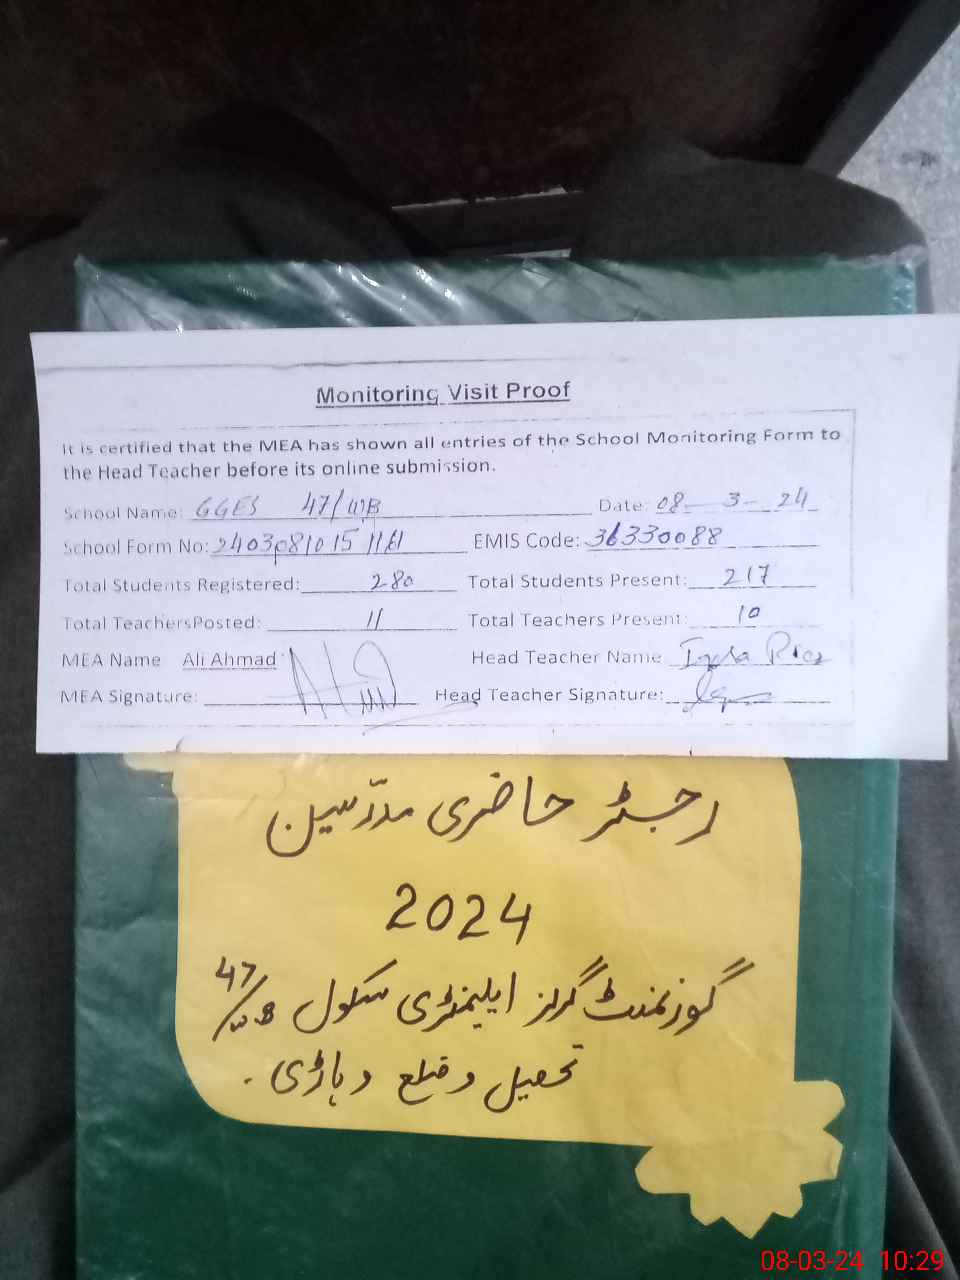 Monitoring Visit Proof
It is certified that the MEA has shown all entries of the School Monitoring Form to
the Head Teacher before its online submission.
School Name: GGES 47/WB Date: 08-3-24
School Form No: 2403081015 1161 EMIS Code: 36330088
Total Students Registered: 280 Total Students Present: 217
Total TeachersPosted: 11 Total Teachers Present: 10
MEA Name Ali Ahmad Head Teacher Name Iqra
MEA Signature: Head Teacher Signature:
رجسٹر حاضری مدرّسین
2024
گورنمنٹ گرلز ایلیمنٹری سکول 47/W.B
تحصیل و ضلع وہاڑی.
08-03-24 10:29